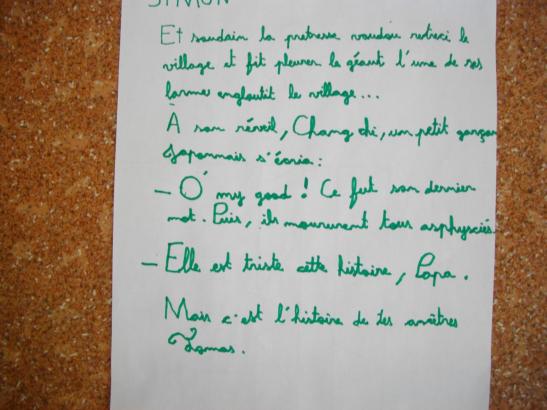 SIMON
Et soudain la pretresse vaudou retreci le
village et fit pleurer le géant l'une de ses
larme engloutit le village...
À son réveil, Chang chi, un petit garçon
Japonnais s'écria :
– O' my good ! Ce fut son dernier
mot. Puis, ils moururent tous asphyxiés.
– Elle est triste cette histoire, Papa.
Mais c'est l'histoire de tes ancêtres
Tomas.